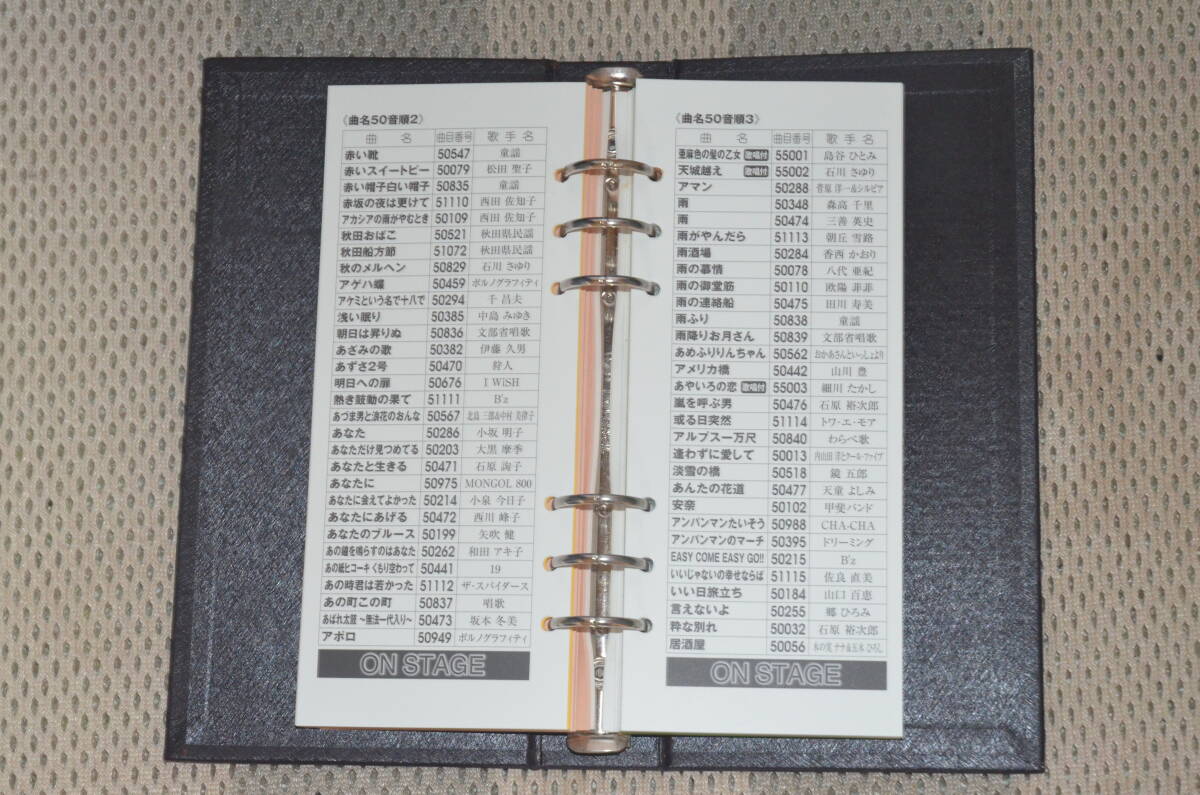 《曲名50音順2》
曲 名 曲目番号 歌 手 名
赤い靴 50547 童謡
赤いスイートピー 50079 松田 聖子
赤い帽子白い帽子 50835 童謡
赤坂の夜は更けて 51110 西田 佐知子
アカシアの雨がやむとき 50109 西田 佐知子
秋田おばこ 50521 秋田県民謡
秋田船方節 51072 秋田県民謡
秋のメルヘン 50829 石川 さゆり
アゲハ蝶 50459 ポルノグラフィティ
アケミという名で十八で 50294 千 昌夫
浅い眠り 50385 中島 みゆき
朝日は昇りぬ 50836 文部省唱歌
あざみの歌 50382 伊藤 久男
あずさ2号 50470 狩人
明日への扉 50676 I WiSH
熱き鼓動の果て 51111 B'z
あづま男と浪花のおんな 50567 北島 三郎&中村 美律子
あなた 50286 小坂 明子
あなただけ見つめてる 50203 大黒 摩季
あなたと生きる 50471 石原 詢子
あなたに 50975 MONGOL 800
あなたに会えてよかった 50214 小泉 今日子
あなたにあげる 50472 西川 峰子
あなたのブルース 50199 矢吹 健
あの鐘を鳴らすのはあなた 50262 和田 アキ子
あの紙ヒコーキ くもり空わって 50441 19
あの時君は若かった 51112 ザ・スパイダース
あの町この町 50837 唱歌
あばれ太鼓 ～無法一代入り～ 50473 坂本 冬美
アポロ 50949 ポルノグラフィティ
ON STAGE
《曲名50音順3》
曲 名 曲目番号 歌 手 名
亜麻色の髪の乙女 歌唱付 55001 島谷 ひとみ
天城越え 歌唱付 55002 石川 さゆり
アマン 50288 菅原 洋一&シルビア
雨 50348 森高 千里
雨 50474 三善 英史
雨がやんだら 51113 朝丘 雪路
雨酒場 50284 香西 かおり
雨の慕情 50078 八代 亜紀
雨の御堂筋 50110 欧陽 菲菲
雨の連絡船 50475 田川 寿美
雨ふり 50838 童謡
雨降りお月さん 50839 文部省唱歌
あめふりりんちゃん 50562 おかあさんといっしょより
アメリカ橋 50442 山川 豊
あやいろの恋 歌唱付 55003 細川 たかし
嵐を呼ぶ男 50476 石原 裕次郎
或る日突然 51114 トワ・エ・モア
アルプス一万尺 50840 わらべ歌
逢わずに愛して 50013 内山田 洋とクール・ファイブ
淡雪の橋 50518 鏡 五郎
あんたの花道 50477 天童 よしみ
安奈 50102 甲斐バンド
アンパンマンたいそう 50988 CHA-CHA
アンパンマンのマーチ 50395 ドリーミング
EASY COME EASY GO!! 50215 B'z
いいじゃないの幸せならば 51115 佐良 直美
いい日旅立ち 50184 山口 百恵
言えないよ 50255 郷 ひろみ
粋な別れ 50032 石原 裕次郎
居酒屋 50056 木の実 ナナ&五木 ひろし
ON STAGE